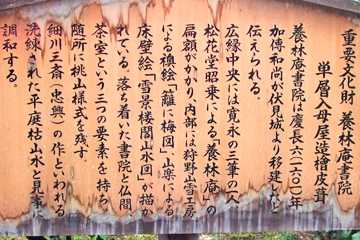 重要文化財 養林庵書院
単層入母屋造檜皮葺
養林庵書院は慶長六(一六〇一)年
加傳和尚が伏見城より移建したと
伝えられる。
広縁中央には寛永の三筆の一人
松花堂昭乗による「養林庵」の
扁額がかかり、内部には狩野山雪工房
による襖絵「籬に梅図」、山楽による
床壁絵「雪景楼閣山水図」が描か
れている。落ち着いた書院と仏間、
茶室という三つの要素を持ち、
随所に桃山様式を残す。
細川三斎(忠興)の作といわれる
洗練された平庭枯山水と見事に
調和する。